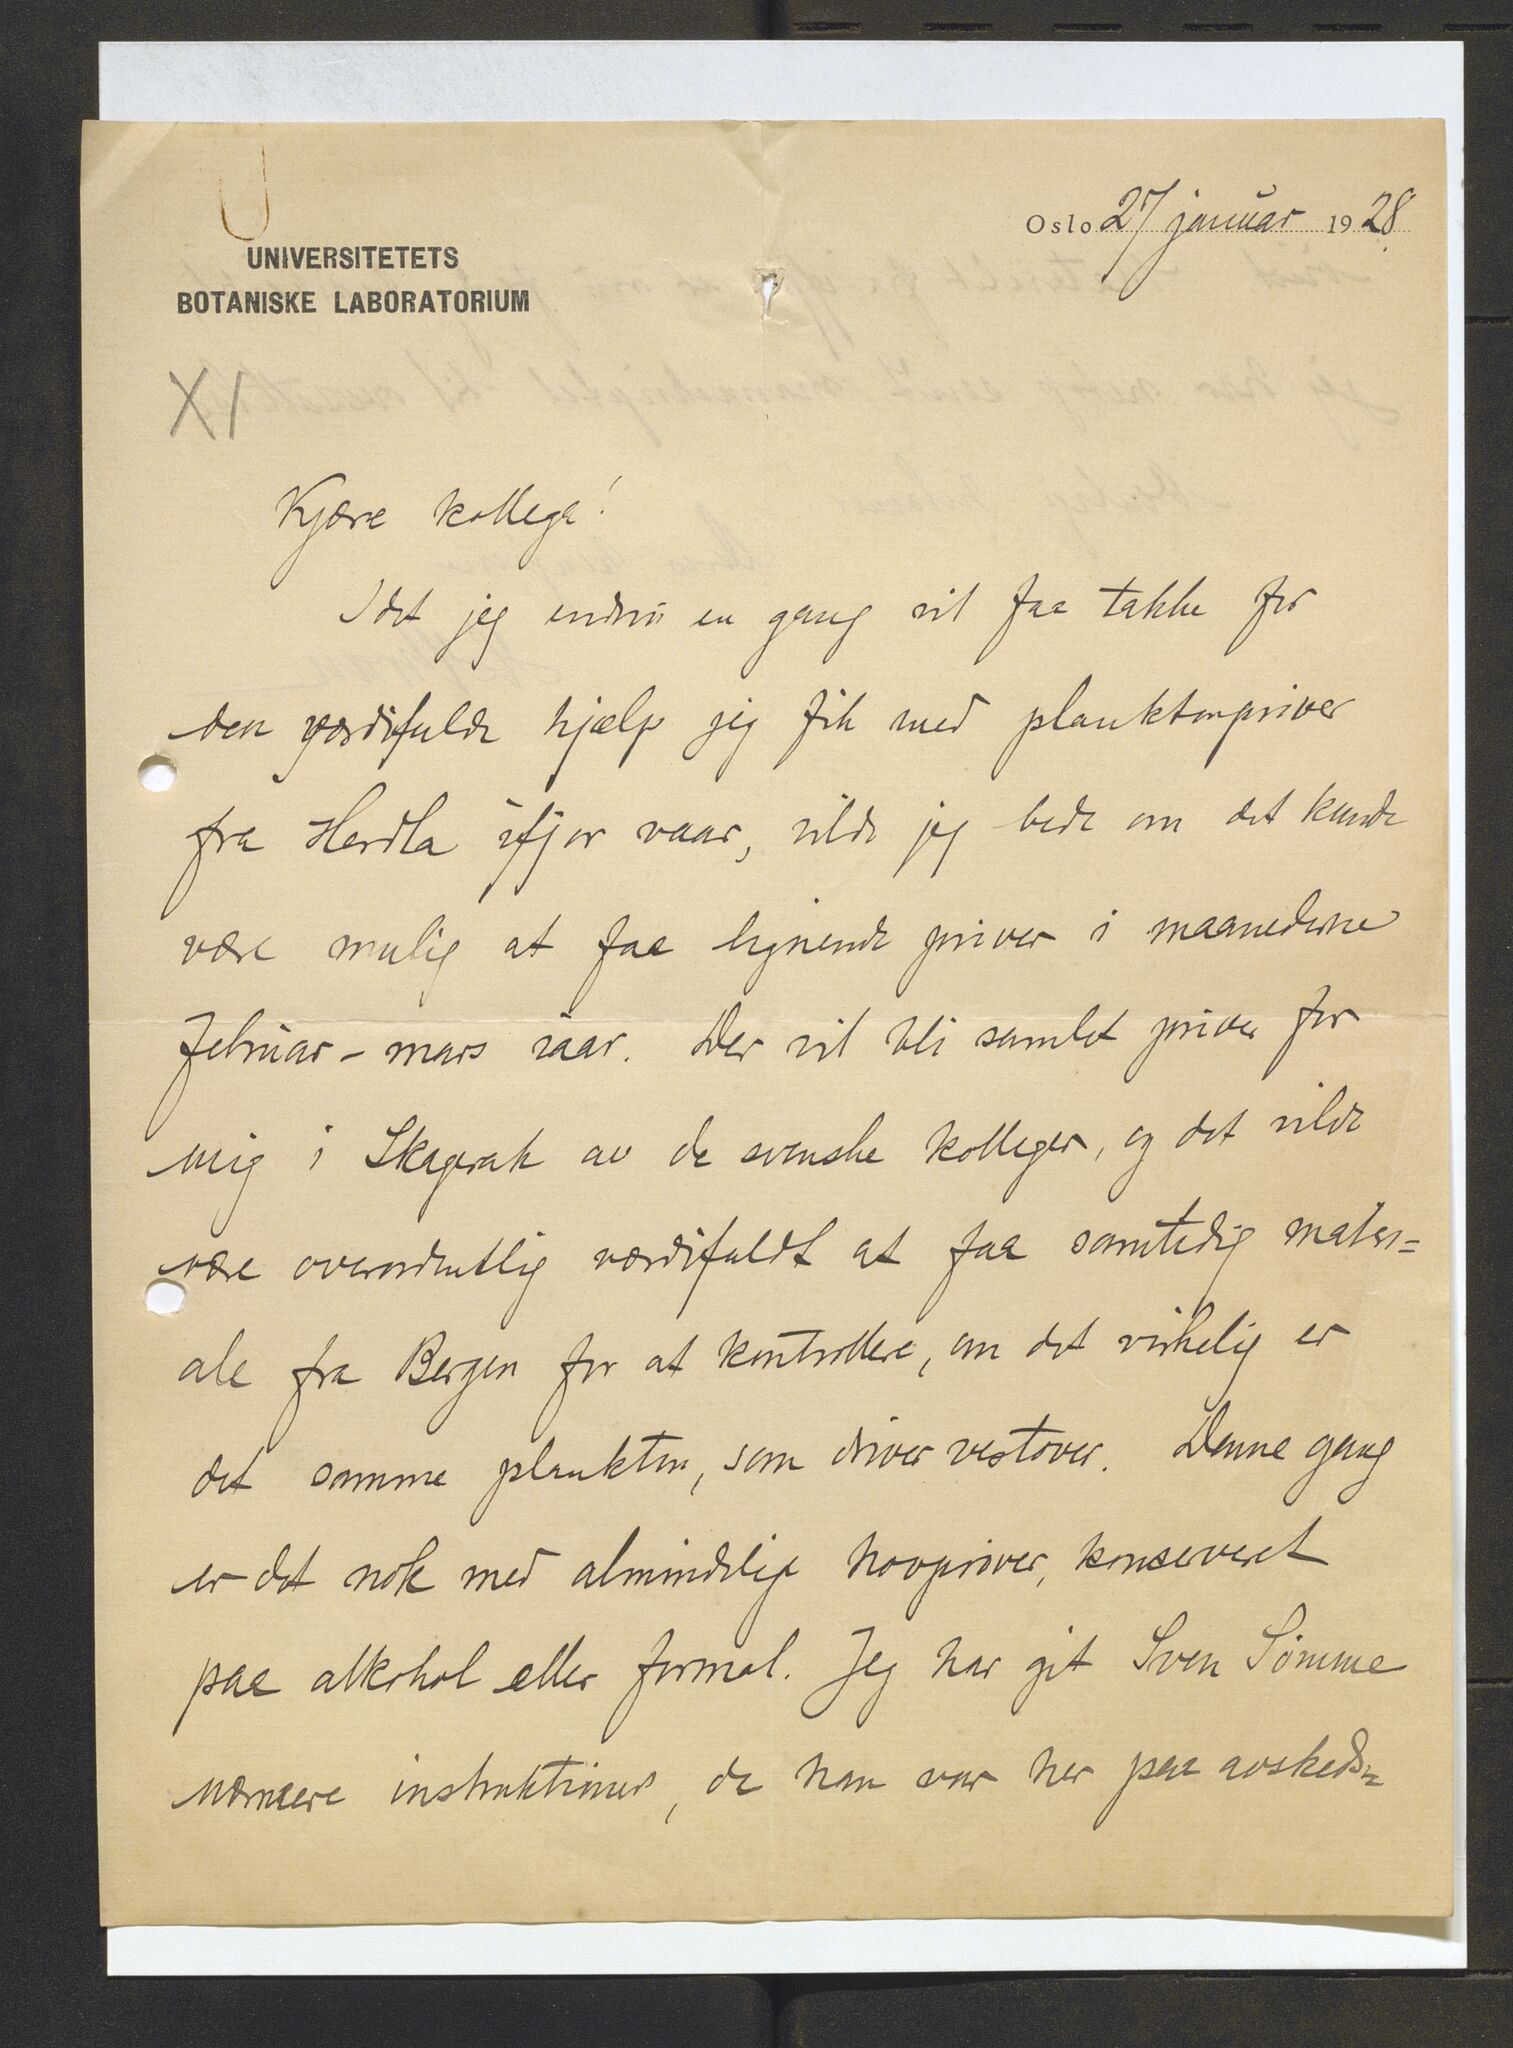 Oslo 27 januar 1928.
UNIVERSITETETS
BOTANISKE LABORATORIUM
X1
Kjære kollega!
Idet jeg endnu en gang vil faa takke for
den værdifulde hjælp jeg fik med planktonprøver
fra Herdla ifjor vaar, vilde jeg bede om det kunde
være mulig at faa lignende prøver i maanederne
februar - mars iaar. Der vil bli samlet prøver for
mig i Skagerak av de svenske kolleger, og det vilde
være overordentlig værdifuldt at faa samtidig materi=
ale fra Bergen for at kontrollere, om det virkelig er
det samme plankton, som driver vestover. Denne gang
er det nok med almindelige hovprøver, konserveret
paa alkohol eller formol. Jeg har git Sven Sømme
nærmere instruktioner, da han var her paa avskeds=